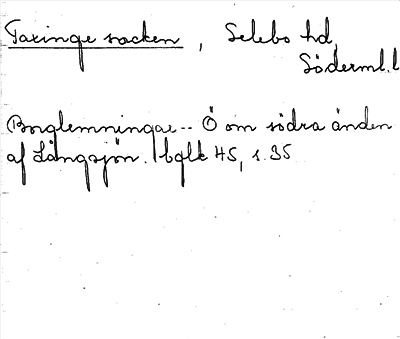 Taxinge socken, Selebo hd,
Söderml. l
Borglemningar -- Ö om södra änden
af Långsjön. Ibglk 45, s. 35